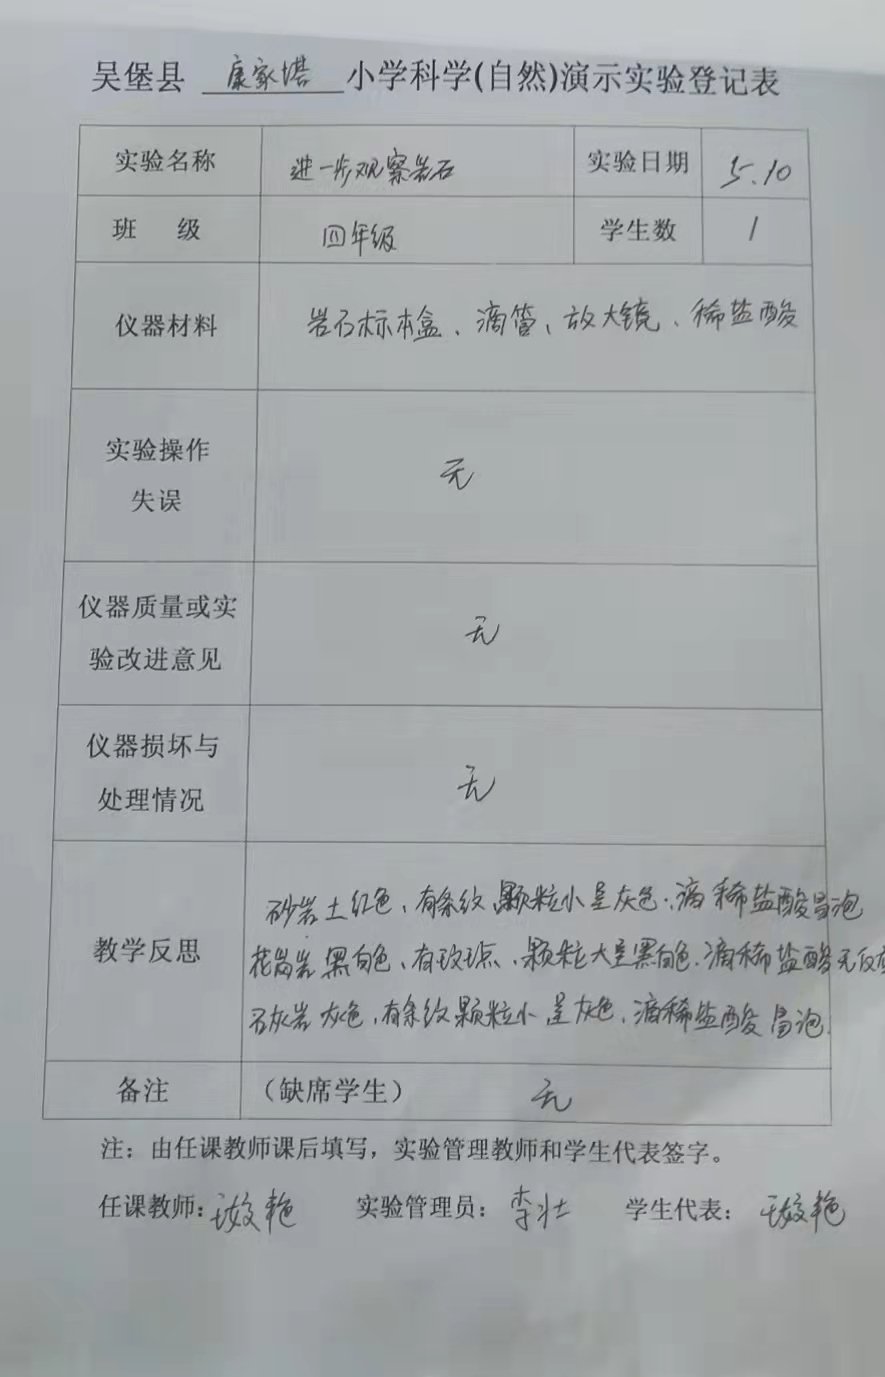 吴堡县 康家塔 小学科学(自然)演示实验登记表
实验名称 进一步观察岩石 实验日期 5.10
班 级 四年级 学生数 1
仪器材料 岩石标本盒、滴管、放大镜、稀盐酸
实验操作
失误
无
仪器质量或实
验改进意见
无
仪器损坏与
处理情况
无
教学反思
砂岩土红色、有条纹、颗粒小呈灰色.滴稀盐酸冒泡
花岗岩黑白色、有斑点、颗粒大呈黑白色.滴稀盐酸无反应
石灰岩灰色,有条纹颗粒小呈灰色,滴稀盐酸冒泡.
备注 (缺席学生) 无
注:由任课教师课后填写,实验管理教师和学生代表签字。
任课教师: 实验管理员:李壮 学生代表: